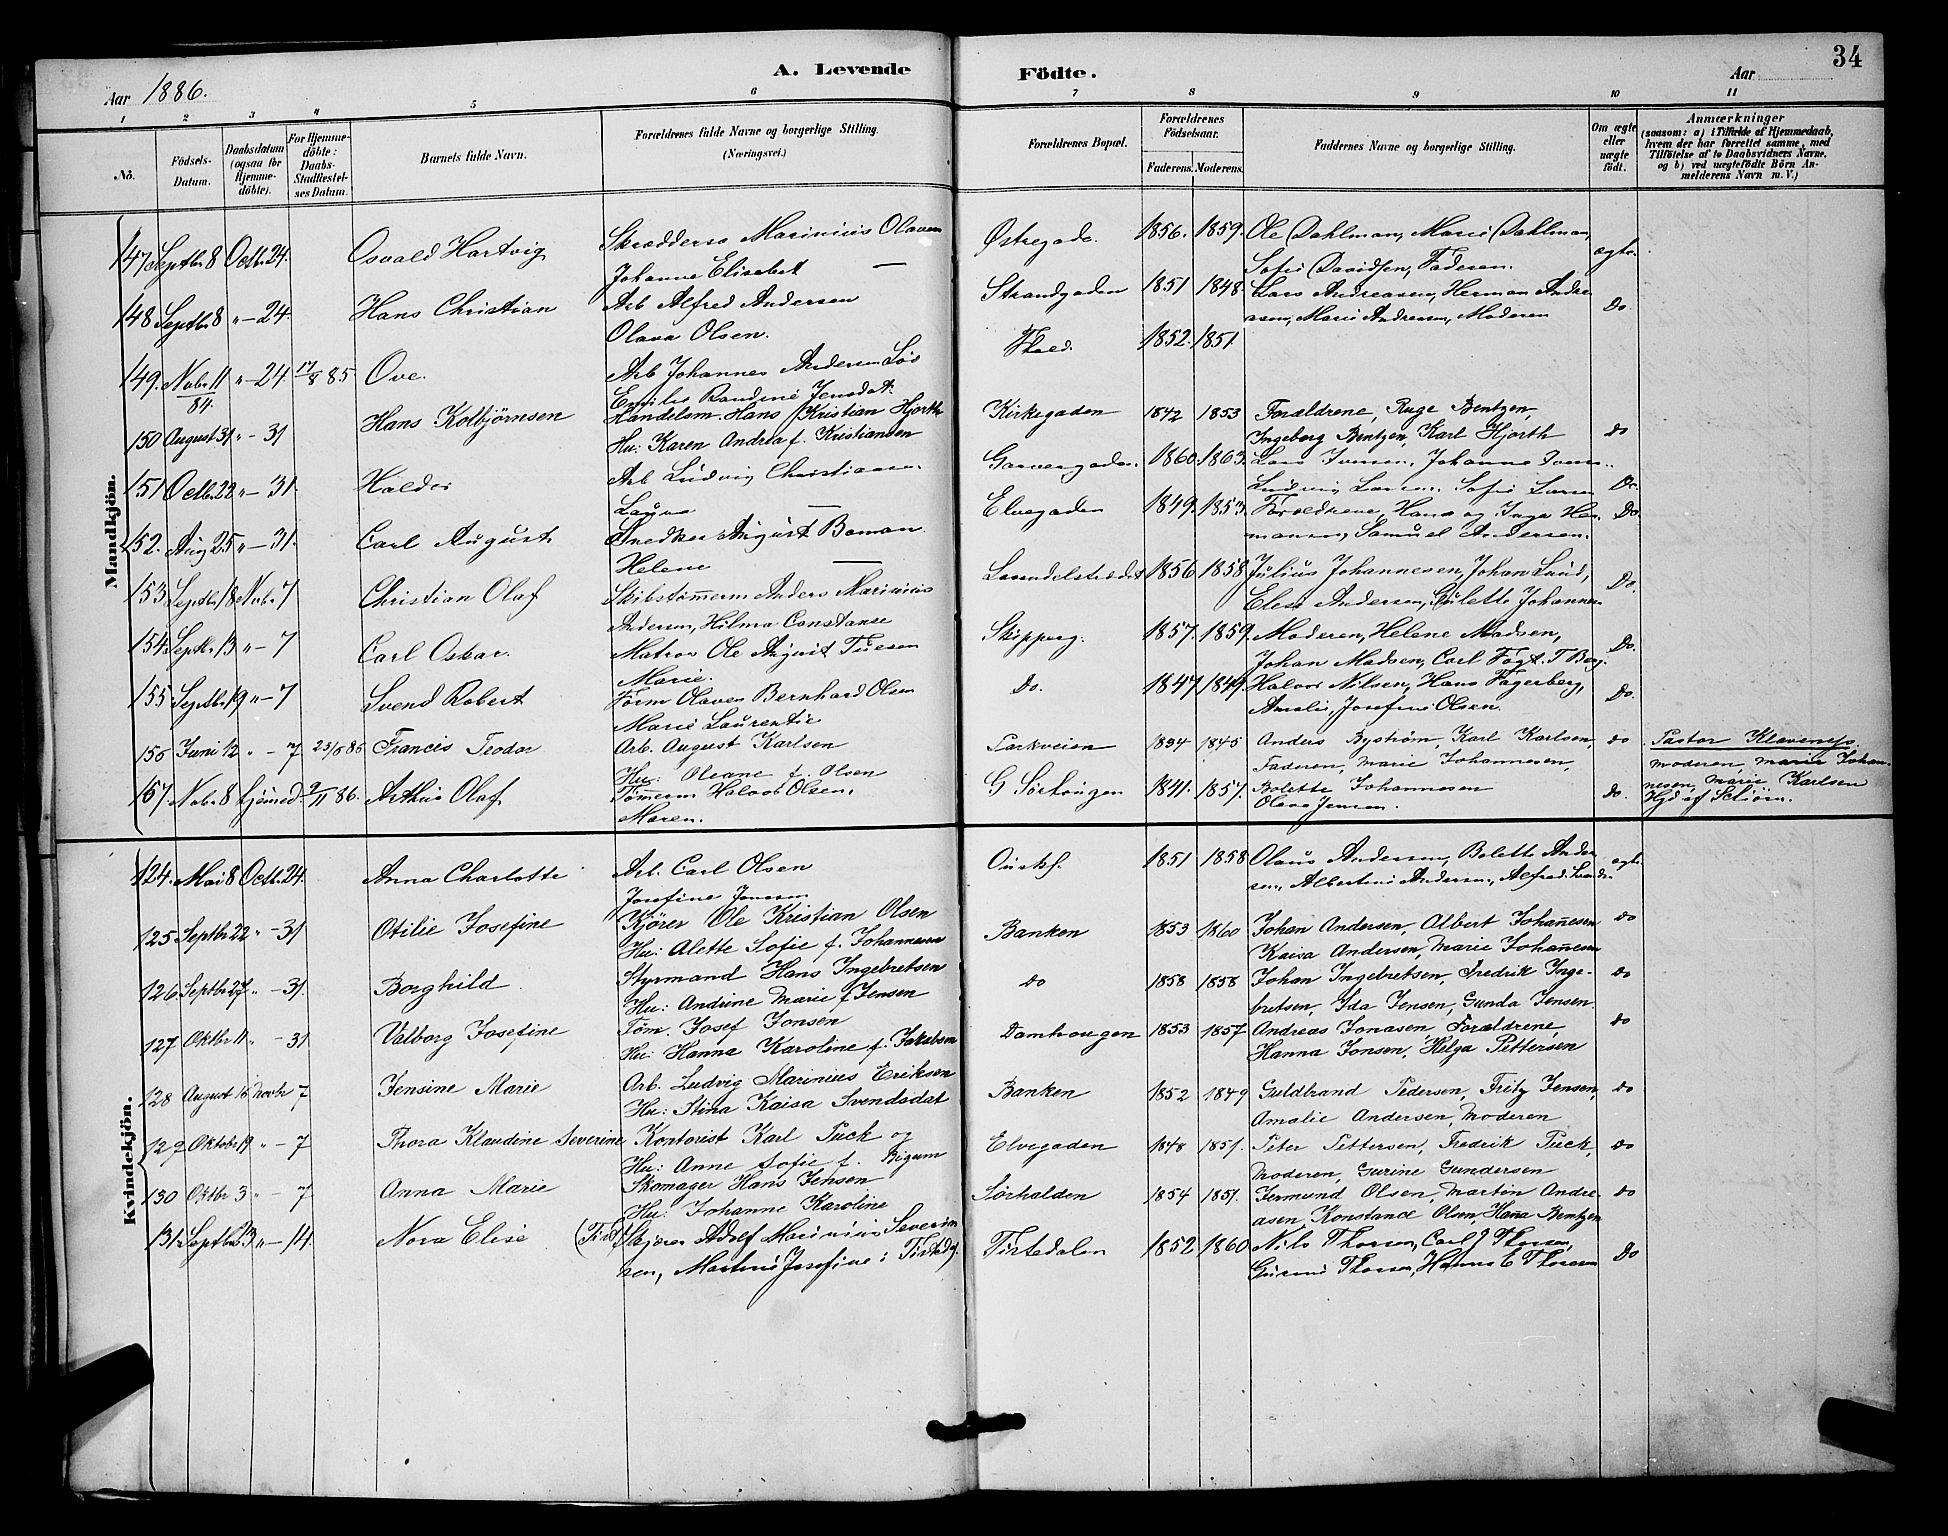 34
A. Levende Födte.
Aar 1886.
Aar
1 2 3 4 5 6 7 8 9 10 11
No.
Födsels-Datum.
Daabsdatum (ogsaa för Hjemmedöbte).
For Hjemmedöbte: Daabs-Stadfæstelses Datum.
Barnets fulde Navn.
Forældrenes fulde Navne og borgerlige Stilling. (Næringsvei.)
Forældrenes Bopæl.
Forældrenes Födselsaar.
Faderens. Moderens.
Faddernes Navne og borgerlige Stilling.
Om ægte eller uægte födt.
Anmærkninger (saasom: a) i Tilfælde af Hjemmedaab, hvem der har forrettet samme, med Tilföielse af to Daabsvidners Navne, og b) ved uægtefödte Börn Anmelderens Navn m. V.)
Mandkjön.
147 Septbr 8 Octb. 24. Osvald Hartvig Skrædersv Marinius Olavsen Østregade. 1856. 1859. Ole Dahlman, Marie Dahlman, ægte.
Johanne Elisabet — Sofie Davidsen, Faderen.
148 Septbr 8 " — 24. Hans Christian Arb Alfred Andersen Strandgaden 1851 1848. Lars Andreasen, Herman Andre- Do.
Olava Olsen. asen, Marie Andreasen, Moderen
149. Nobr 11 84. " — 24 17/8 85 Ove. Arb Johannes Andersen Løs 1852. 1851.
Emilie Randine Jensdat.
150 August 31 " — 31 Hans Kolbjörnsen Handelsm. Hans Kristian Hjorth Kirkegaden 1842 1853 Forældrene, Ruge Bentzen, do
Hu: Karen Andrea f. Kristiansen Ingeborg Bentzen, Karl Hjorth
151 Octbr 22 " — 31. Haldor Arb Ludvig Christiansen Garvergaden. 1860. 1863. Lars Iversen, Johanne Iversen Do.
Laura — Ludvig Larsen, Sofie Larsen
152. Aug 25 " — 31. Carl August Snedker August Boman Elvegaden 1849. 1853. Forældrene, Hans og Inga Her- Do.
Helene — mansen, Samuel Andersen.
153 Septbr 18 Nobr. 7 Christian Olaf Skibstømerm Anders Marinius Lavendelstrædet 1856 1858 Julius Johannesen, Johan Lund, Do.
Andersen, Hilma Constanse Elise Andersen, Gulette Johannesen
154 Septbr 13 " — 7 Carl Oskar. Matros Ole August Tuesen Skipperg. 1857. 1859. Moderen, Helene Madsen, Do.
Marie. Johan Madsen, Carl Fogt. T Berg.
155 Septbr 19 " — 7 Svend Robert Tömm Olaves Bernhard Olsen Do. 1847. 1849. Halvor Nilsen, Hans Fagerberg, Do.
Marie Laurentie Amalie, Josefine Olsen.
156 Juni 12 " — 7 23/6 86 Francis Teodor Arb. August Karlsen Parkveien 1834 1845 Anders Byström, Karl Karlsen, do Pastor Klaveness.
Hu: Oleane f. Olsen Faderen, Marie Johannesen, Moderen, Marie Johan-
nesen, Marie Karlsen
157 Nobr. 8 hjemmed 9/11 86. Arthur Olaf Tömmerm Halvor Olsen, G Sörhougen 1841. 1857. Bolette Johannesen Do. Hjd af Schiörn.
Maren. Olava Jensen.
Kvindekjön.
124. Mai 8 Octbr. 24. Anna Charlotte Arb. Carl Olsen 1851 1858 Olaus Andersen, Bolette Ander- ægte.
Josefine Jensen sen, Albertine Andersen, Alfred
125 Septbr 22 " — 31 Otilie Josefine Kjörer Ole Kristian Olsen Banken 1853 1860 Johan Andersen, Albert Johannesen do
Hu: Alette Sofie f. Johannessen Kaisa Andersen, Marie Johannesen
126 Septbr 27 " — 31. Borghild. Styrmand Hans Ingebretsen do 1858 1858 Johan Ingebretsen, Fredrik Inge- do
Hu: Andrine Marie f Jensen bretsen, Ida Jensen, Gunda Jensen
127 Oktbr 11 " — 31 Valborg Josefine Töm. Josef Jonsen Damhougen 1853 1857 Andreas Jonasen, Forældrene, do
Hu: Hanna Karoline f. Jakobsen Hanna Jonsen, Helga Pettersen
128 August 16 Novbr 7 Jensine Marie Arb. Ludvig Marinius Eriksen Banken 1852 1849 Guldbrand Pedersen, Fritz Jensen, do
Hu: Stina Kaisa Svendsdat Amalie Andersen, Moderen
129 Oktobr 19 " — 7 Thora Klaudine Severine Kontorist Karl Puck og Elvegaden 1848 1851. Peter Pettersen, Fredrik Puck, do
Hu: Anne Sofie f. Bigum Moderen, Gurine Gundersen
130 Oktbr 3 " — 7 Anna Marie Skomager Hans Jensen Sörhalden 1854 1851. Jermund Olsen, Martin Andre- do
Hu: Johanne Karoline asen, Konstance Olsen, Hana Bentzen
131 Septbr 3 " — 14. Nora Elise (Tistd) Skjörer Adolf Marinius Severin Tistedalen 1852 1860 Nils Thorsen, Carl J Thorsen, Do
sen, Martine Josefine i Tistedal Gurine Thorsen, Hanna E Thoresen